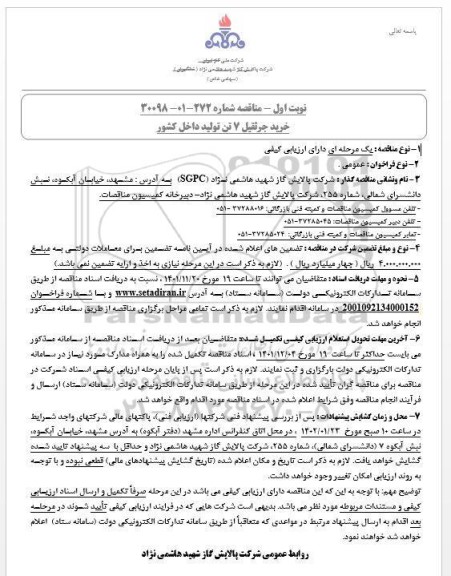 باسمه تعالی
شرکت ملی گاز ایران
شرکت پالایش گاز شهید هاشمی نژاد (خانگیران)
(سهامی خاص)
نوبت اول – مناقصه شماره ۲۷۲-۰۱-۳۰۰۹۸
خرید جرثقیل ۷ تن تولید داخل کشور
۱- نوع مناقصه: یک مرحله ای دارای ارزیابی کیفی
۲- نوع فراخوان: عمومی
۳- نام ونشانی مناقصه گذار: شرکت پالایش گاز شهید هاشمی نژاد (SGPC) به آدرس: مشهد، خیابان آبکوه، نبش
دانشسرای شمالی، شماره ۲۵۵، شرکت پالایش گاز شهید هاشمی نژاد- دبیرخانه کمیسیون مناقصات.
- تلفن مسوول کمیسیون مناقصات و کمیته فنی بازرگانی: ۳۷۲۸۸۰۱۶-۰۵۱
- تلفن دبیر کمیسیون مناقصات: ۳۷۲۸۵۰۴۵-۰۵۱
- نمابر کمیسیون مناقصات و کمیته فنی بازرگانی: ۳۷۲۸۵۰۲۴-۰۵۱
۴- نوع و مبلغ تضمین شرکت در مناقصه: تضمین های اعلام شده در آیین نامه تضمین برای معاملات دولتی به مبلغ
۴.۰۰۰.۰۰۰.۰۰۰ ریال (چهار میلیارد ریال). (لازم به ذکر است در این مرحله نیازی به اخذ و ارایه تضمین نمی باشد.)
۵- نحوه و مهلت دریافت اسناد: متقاضیان می توانند تا ساعت ۱۹ مورخ ۱۴۰۱/۱۱/۲۰، نسبت به دریافت اسناد مناقصه از طریق
سامانه تدارکات الکترونیکی دولت (سامانه ستاد) به آدرس www.setadiran.ir و با شماره فراخوان
2001092134000152 در سامانه اقدام نمایند. لازم به ذکر است تمامی مراحل برگزاری مناقصه از طریق سامانه مذکور
انجام خواهد شد.
۶- آخرین مهلت تحویل استعلام ارزیابی کیفی تکمیل شده: متقاضیان بعد از دریافت اسناد مناقصه از سامانه مذکور
می بایست حداکثر تا ساعت ۱۹ مورخ ۱۴۰۱/۱۲/۰۴، اسناد مناقصه تکمیل شده را به همراه مدارک مورد نیاز در سامانه
تدارکات الکترونیکی دولت بارگزاری و ثبت نمایند. لازم به ذکر است پس از پایان مرحله ارزیابی کیفی اسناد شرکت در
مناقصه برای مناقصه گران تأیید شده در این مرحله از طریق سامانه تدارکات الکترونیکی دولت (سامانه ستاد) ارسال و
فرآیند انجام مناقصه وفق شرایط اعلام شده در اسناد مناقصه مورد اقدام واقع خواهد شد.
۷- محل و زمان گشایش پیشنهادات: پس از بررسی پیشنهاد فنی شرکتها (ارزیابی فنی)، پاکتهای مالی شرکتهای واجد شرایط
در ساعت ۱۰ صبح مورخ ۱۴۰۲/۰۱/۲۳، در محل اتاق کنفرانس اداره مشهد (دفتر آبکوه) به آدرس مشهد، خیابان آبکوه،
نبش آبکوه ۷ (دانشسرای شمالی)، شماره ۲۵۵، شرکت پالایش گاز شهید هاشمی نژاد و حداقل با سه پیشنهاد تایید شده
گشایش خواهد یافت. لازم به ذکر است تاریخ و مکان اعلام شده (تاریخ گشایش پیشنهادهای مالی) قطعی نبوده و با توجه
به روند ارزیابی امکان تغییر وجود خواهد داشت.
توضیح مهم: با توجه به این که این مناقصه دارای ارزیابی کیفی می باشد در این مرحله صرفاً تکمیل و ارسال اسناد ارزیابی
کیفی و مستندات مربوطه مورد نظر می باشد. بدیهی است شرکت هایی که در فرایند ارزیابی کیفی تأیید شوند در مرحله
بعد اقدام به ارسال پیشنهاد مرتبط در مواعدی که متعاقباً از طریق سامانه تدارکات الکترونیکی دولت (سامانه ستاد) اعلام
خواهد شد خواهند نمود.
روابط عمومی شرکت پالایش گاز شهید هاشمی نژاد